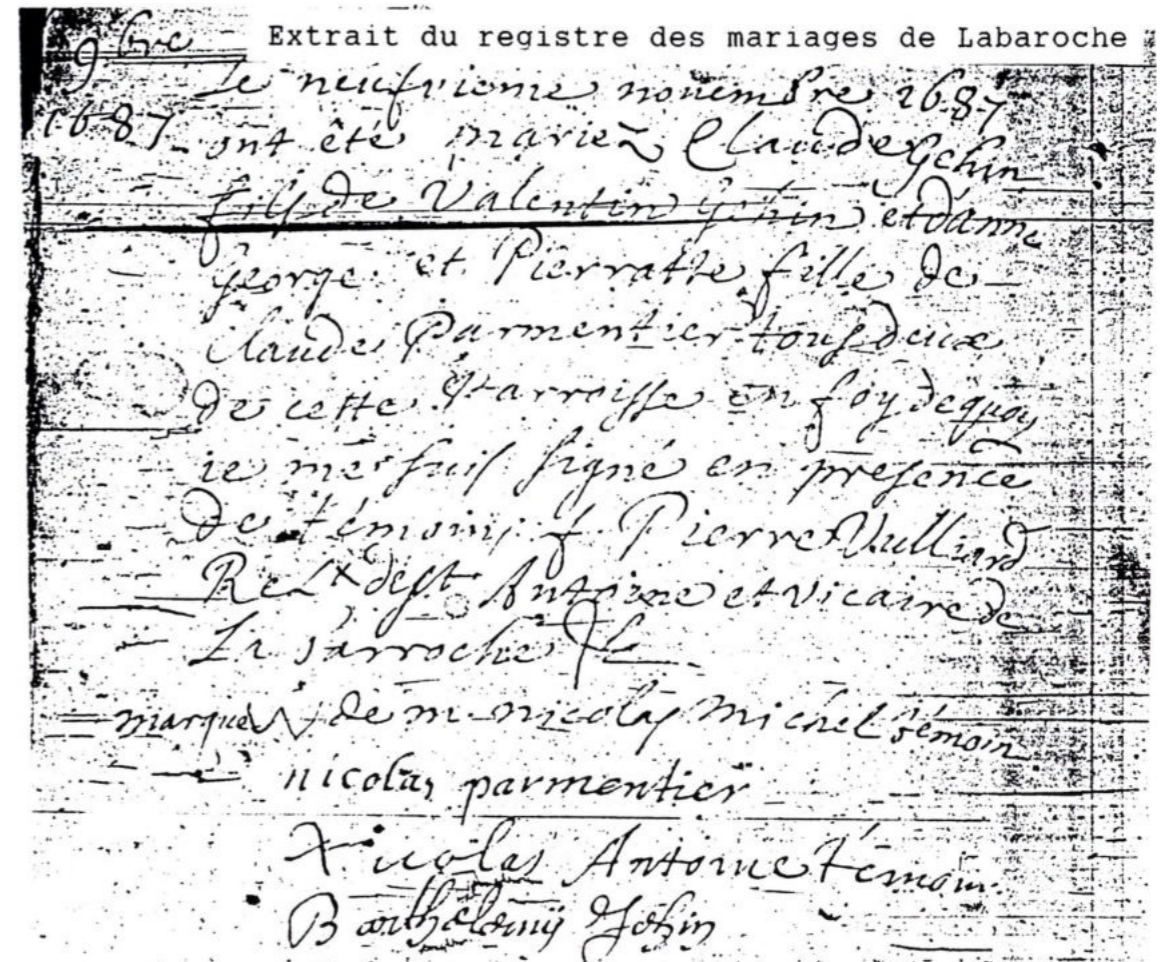 Extrait du registre des mariages de Labaroche
9bre
1687
Le neufvieme novembre 1687
ont été mariez Claude Gehin
fils de Valentin Gehin et d'anne
George et Pierratte fille de
Claude Parmentier tous deux
de cette Parroisse en foy dequoy
ie me suis signé en presence
de témoins f. Pierre Vulliard
Rel de st Antoine et vicaire de
La Barroche
marque de m nicolas michel témoin
nicolas parmentier
Nicolas Antoine témoin
Barthelemij Gehin